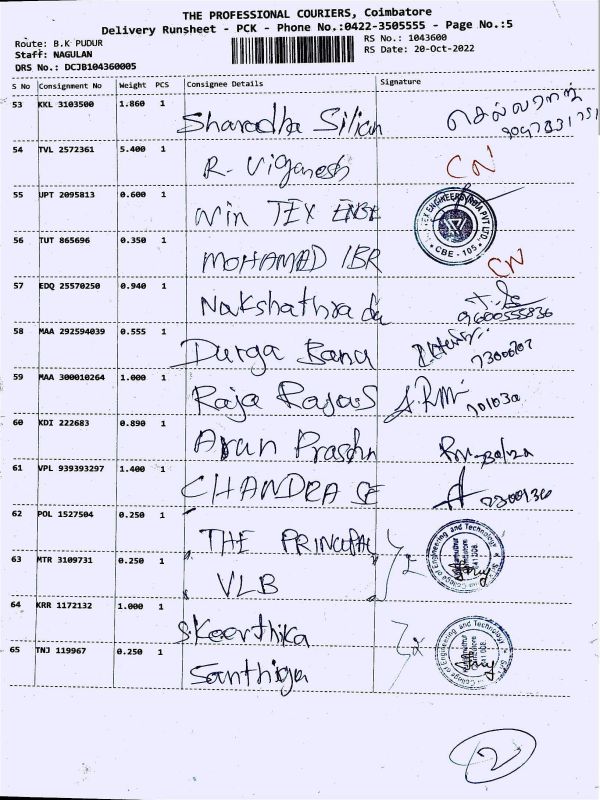 THE PROFESSIONAL COURIERS, Coimbatore
Delivery Runsheet - PCK - Phone No.:0422-3505555 - Page No.:5
Route: B.K PUDUR
RS No.: 1043600
Staff: NAGULAN
RS Date: 20-Oct-2022
DRS No.: DCJB104360005
S No Consignment No Weight PCS Consignee Details Signature
53 KKL 3103500 1.860 1 Sharadha
54 TVL 2572361 5.400 1 R. Viganesh CN
55 UPT 2095813 0.600 1 Win TEX
CBE - 105
56 TUT 865696 0.350 1 MOHAMAD IBR CN
57 EDQ 25570250 0.940 1 Nakshathra
9600555836
58 MAA 292594039 0.555 1 Durga Banu
59 MAA 300010264 1.000 1 Raja
60 KDI 222683 0.890 1 Arun
61 VPL 939393297 1.400 1 CHANDRA SE
62 POL 1527504 0.250 1 THE PRINCIPAL
63 MTR 3109731 0.250 1 VLB
College of Engineering and Technology
64 KRR 1172132 1.000 1 S.Keerthika
65 TNJ 119967 0.250 1 Santhiya
College of Engineering and Technology
2